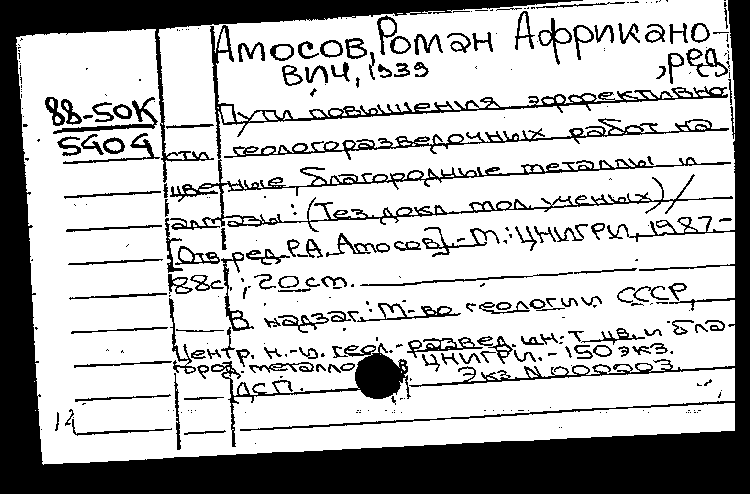 Амосов, Роман Африкано-
вич, 1939
, ред.
88-50К
5404
Пути повышения эффективно
сти геологоразведочных работ на
цветные, благородные металлы и
алмазы : (Тез. докл. мол. ученых) /
[Отв. ред. Р.А. Амосов]. - М. : ЦНИГРИ, 1987. -
88с. ; 20 см.
В надзаг. : М-во геологии СССР,
Центр. н.-и. геол.-развед. ин-т цв. и бла-
город. металлов ЦНИГРИ. - 150 экз.
ДСП. Экз. N 000003.
12